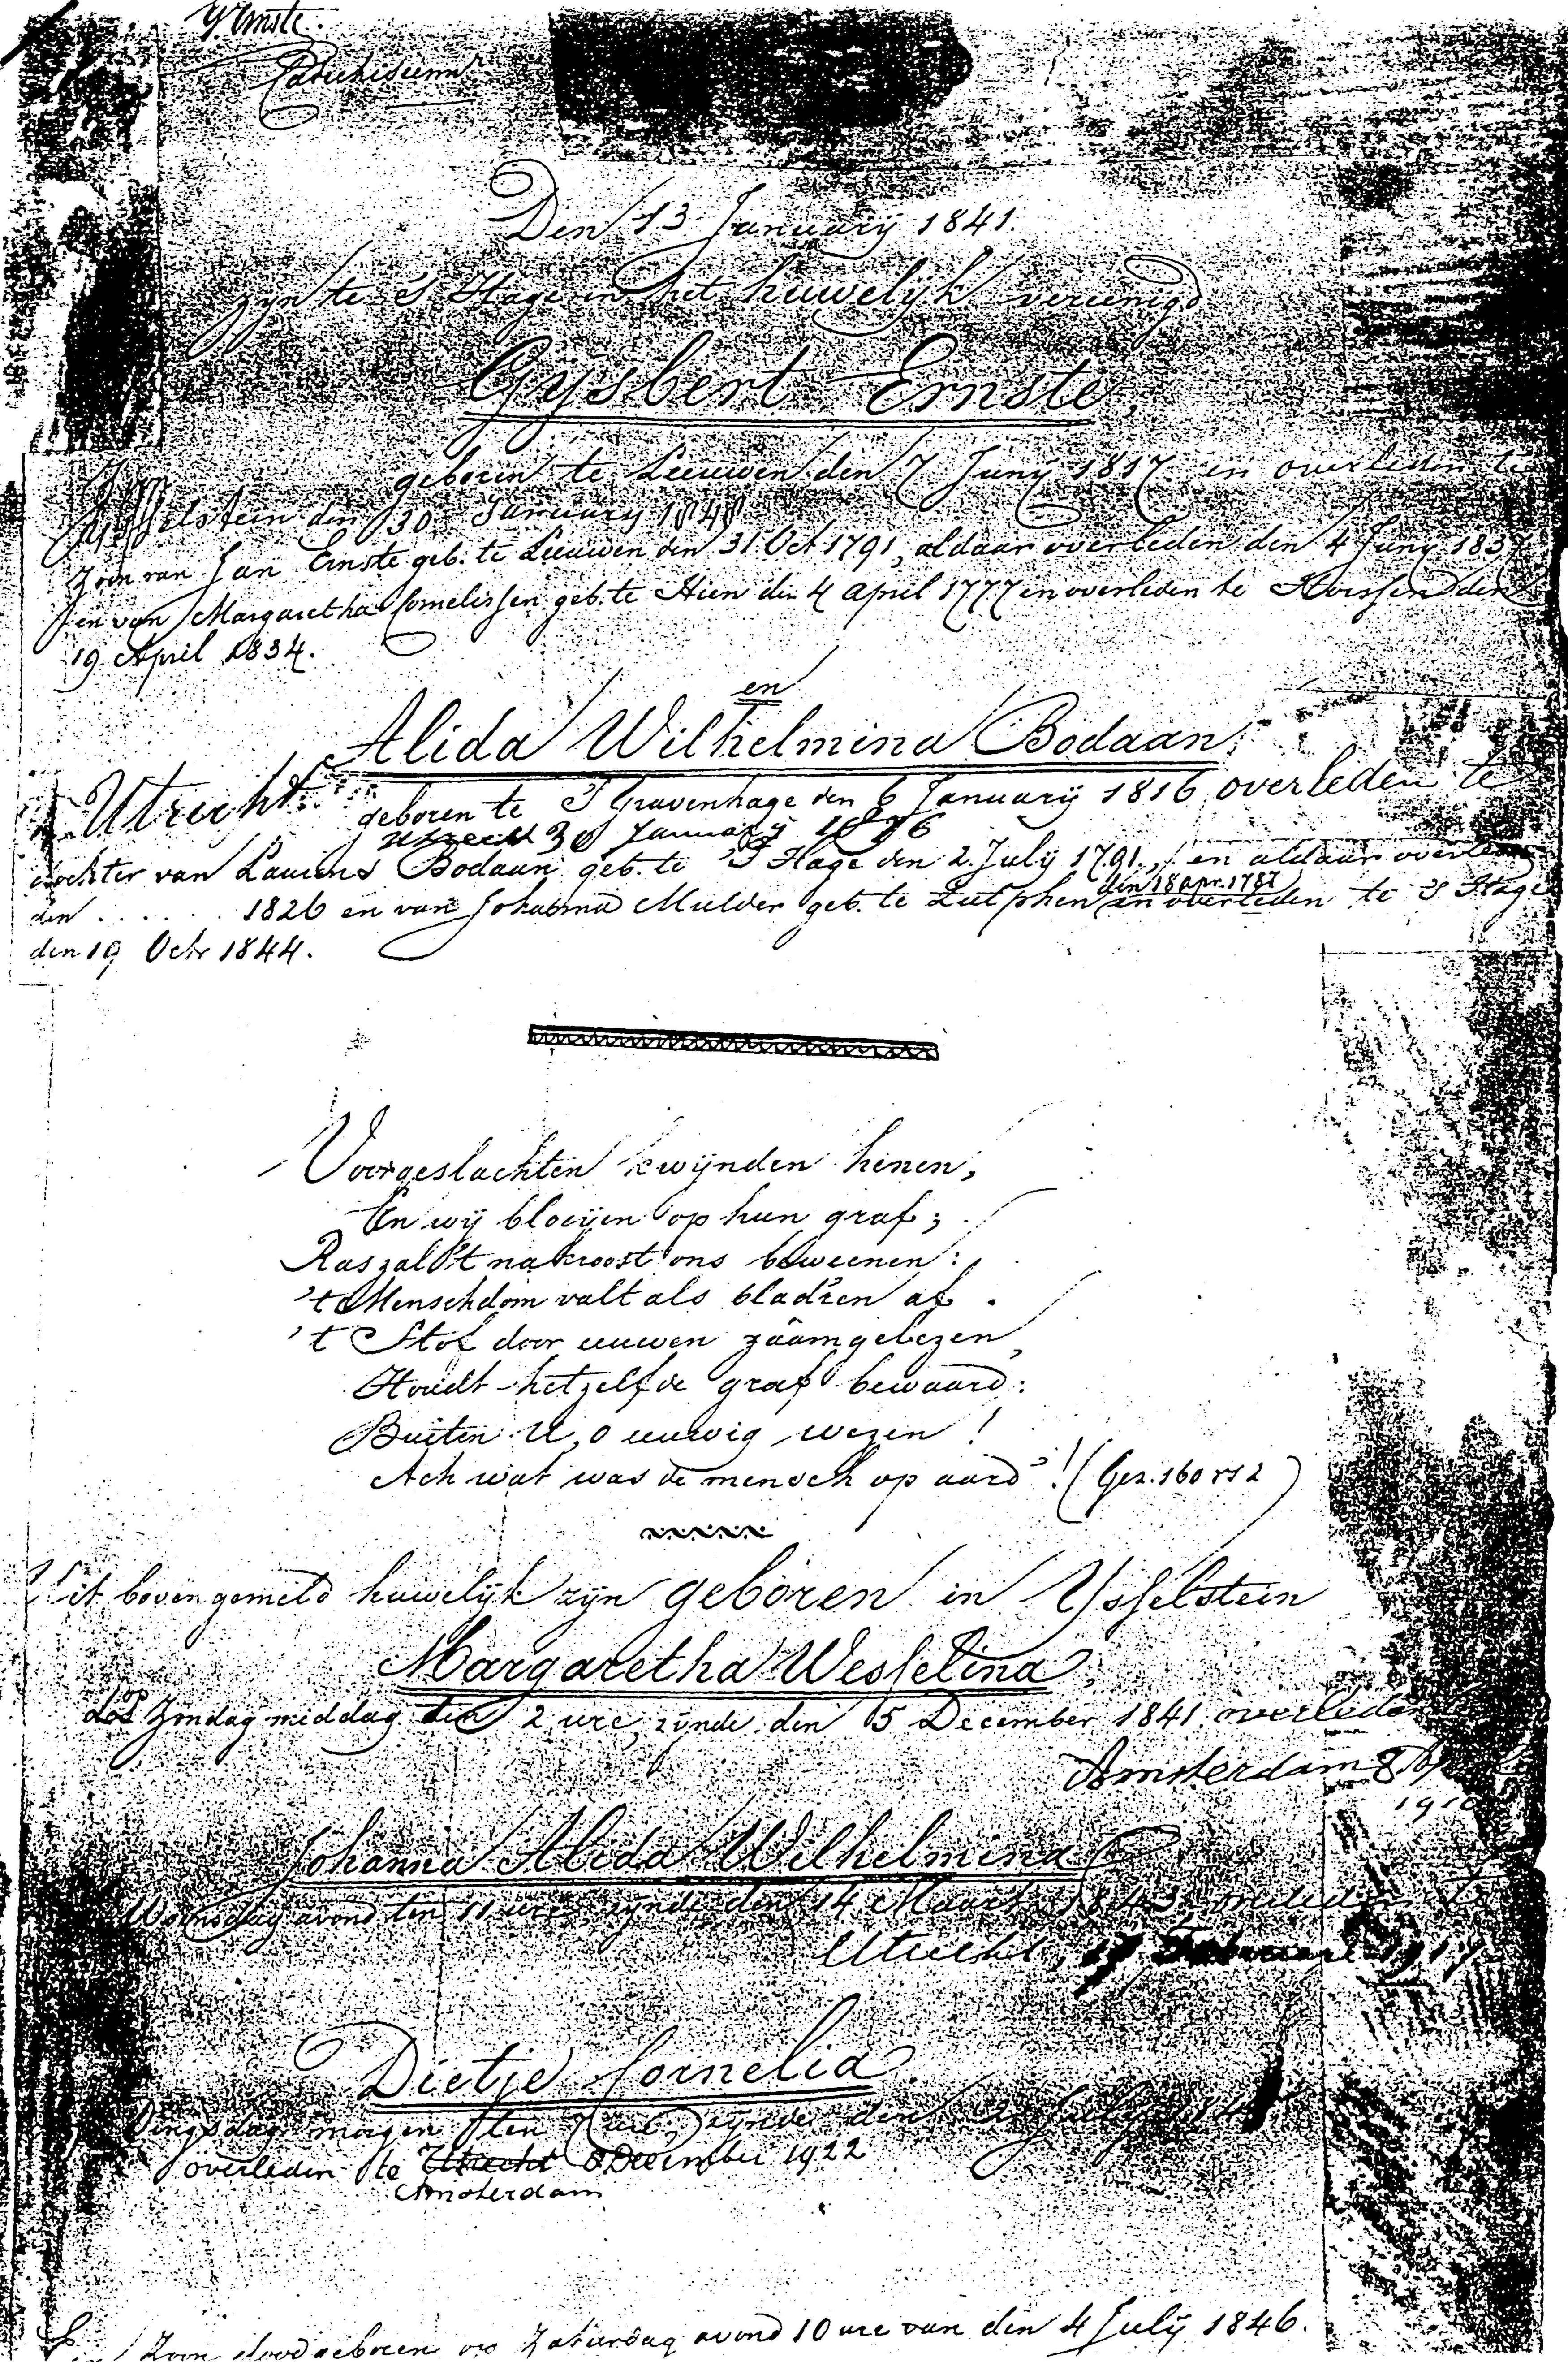 G. Ernste.
Catechiseermr
Den 13 Januarij 1841.
zyn te 's Hage in het huwelyk vereenigd
Gysbert Ernste,
geboren te Leeuwen den 7 Juny 1817 en overleden te
Ysselstein den 30 January 1848
Zoon van Jan Ernste geb. te Leeuwen den 31 Oct 1791, aldaar overleden den 4 Juny 1837
en van Margaretha Cornelissen geb. te Hien den 4 April 1777 en overleden te den
19 April 1834.
en
Alida Wilhelmina Bodaan,
Utrecht geboren te 'S Gravenhage den 6 Januarij 1816 overleden te
Utrecht 30 January 1876
dochter van Laurens Bodaan geb. te 'S Hage den 2 Julij 1791, en aldaar overleden
den ...... 1826 en van Johanna Mulder geb. te Zutphen den 18 apr. 1787 en overleden te 'S Hage
den 19 Octr 1844.
Voorgeslachten kwijnden henen,
En wij bloeijen op hun graf;
Ras zal 't nakroost ons beweenen:
't Menschdom valt als blad'ren af.
't Stof door eeuwen zaamgelezen,
Houdt hetzelfde graf bewaard:
Buiten U, o eeuwig wezen!
Ach wat was de mensch op aard'! (Gez. 160 vs 2)
Uit bovengemeld huwelijk zijn geboren in Ysselstein
Margaretha Wesselina,
op Zondag middag ten 2 ure, zijnde den 5 December 1841 overleden
Amsterdam 8
1910
Johanna Alida Wilhelmina
Woensdag avond ten 11 ure zynde den 14 Maart 1843, overleden te
Utrecht, 17 Februari 1917
Dietje Cornelia
Dingsdag morgen ten 7 ure, zijnde den 2 July 184
overleden te Utrecht 8 December 1922
Amsterdam
Zoon doodgeboren op Zaturdag avond 10 ure van den 4 Julij 1846.